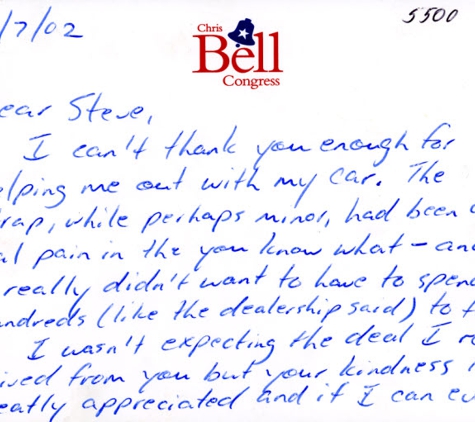 5500
/7/02
Chris
Bell
Congress
ear Steve,
I can't thank you enough for
elping me out with my car. The
rap, while perhaps minor, had been
al pain in the you know what - and
really didn't want to have to spend
undreds (like the dealership said) to f
I wasn't expecting the deal I re
ived from you but your kindness i
eatly appreciated and if I can ev